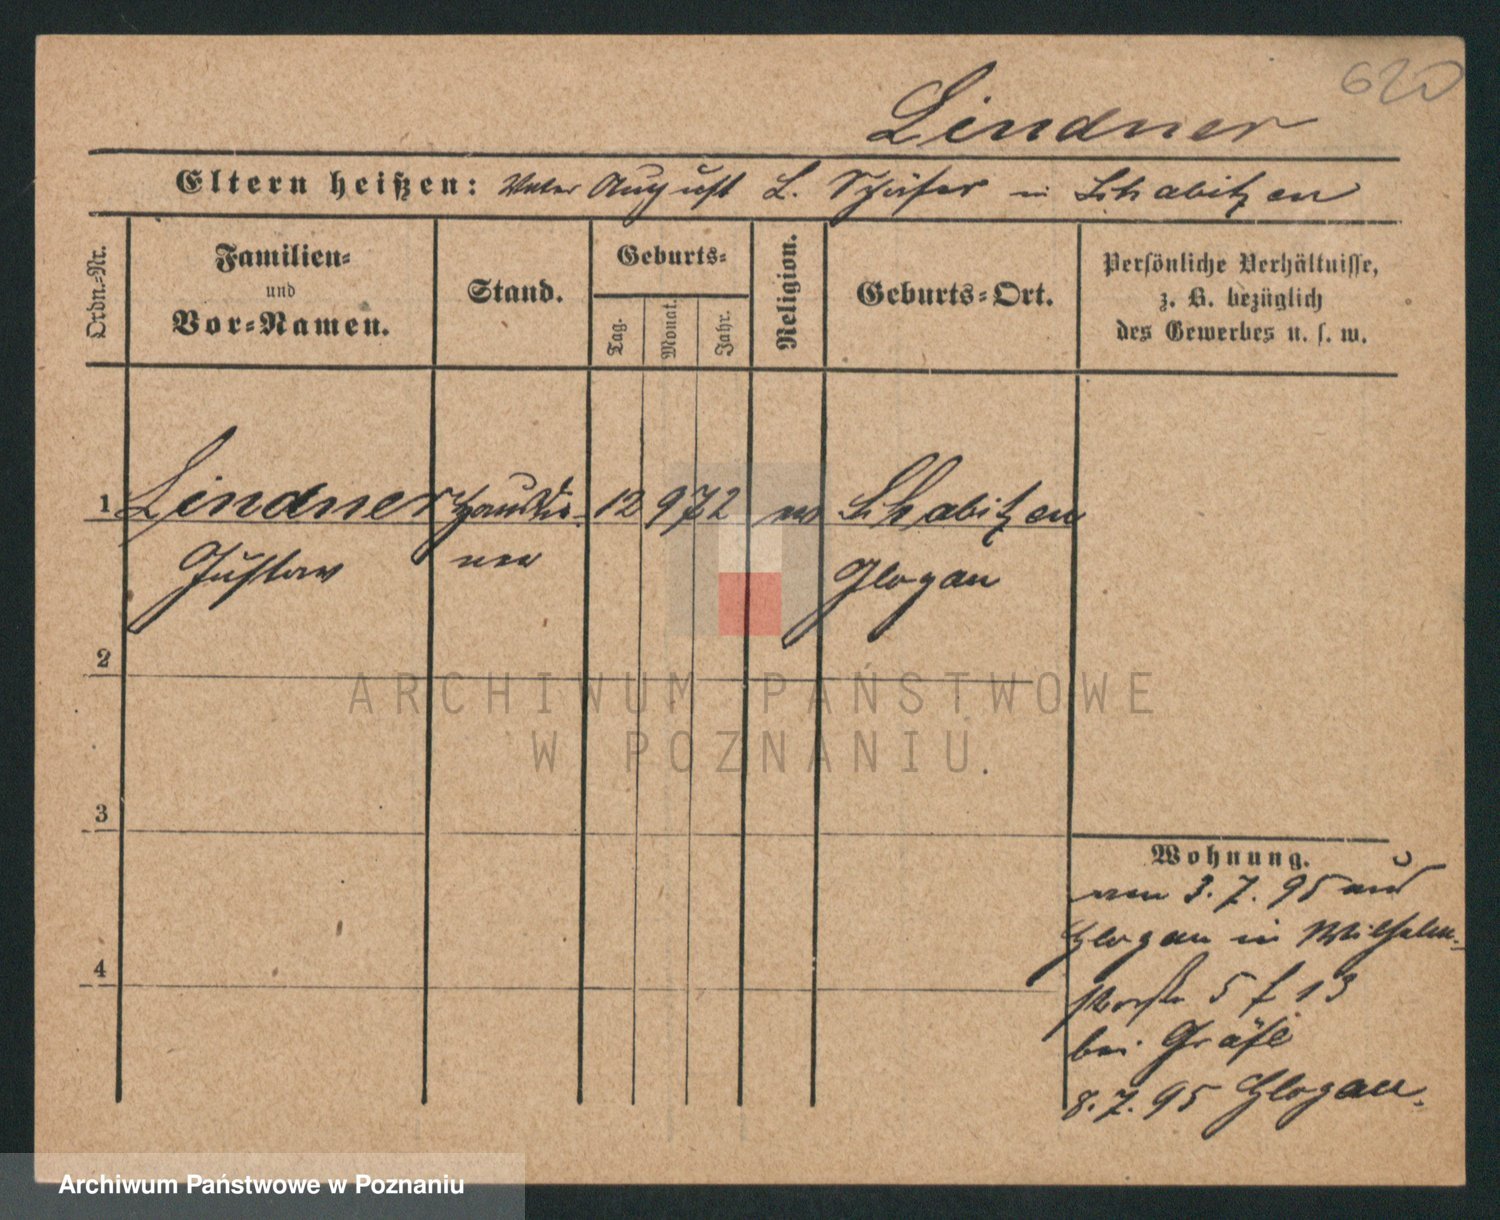 620
Lindner
Eltern heißen: Vater August L. Schäfer in Schabitzen
Ordn.-Nr.
Familien-
und
Vor-Namen.
Stand.
Geburts-
Tag.
Monat.
Jahr.
Religion.
Geburts-Ort.
Persönliche Verhältnisse,
z. B. bezüglich
des Gewerbes u. s. w.
1 Lindner Hausdie- 12 9 72 ev Schabitzen
Gustav ner Glogau
2
ARCHIWUM PAŃSTWOWE
W POZNANIU
3
Wohnung.
3. 7. 95 aus
Glogau in Wilhelm-
5 f 13
bei Gräfe
4
8. 7. 95 Glogau.
Archiwum Państwowe w Poznaniu